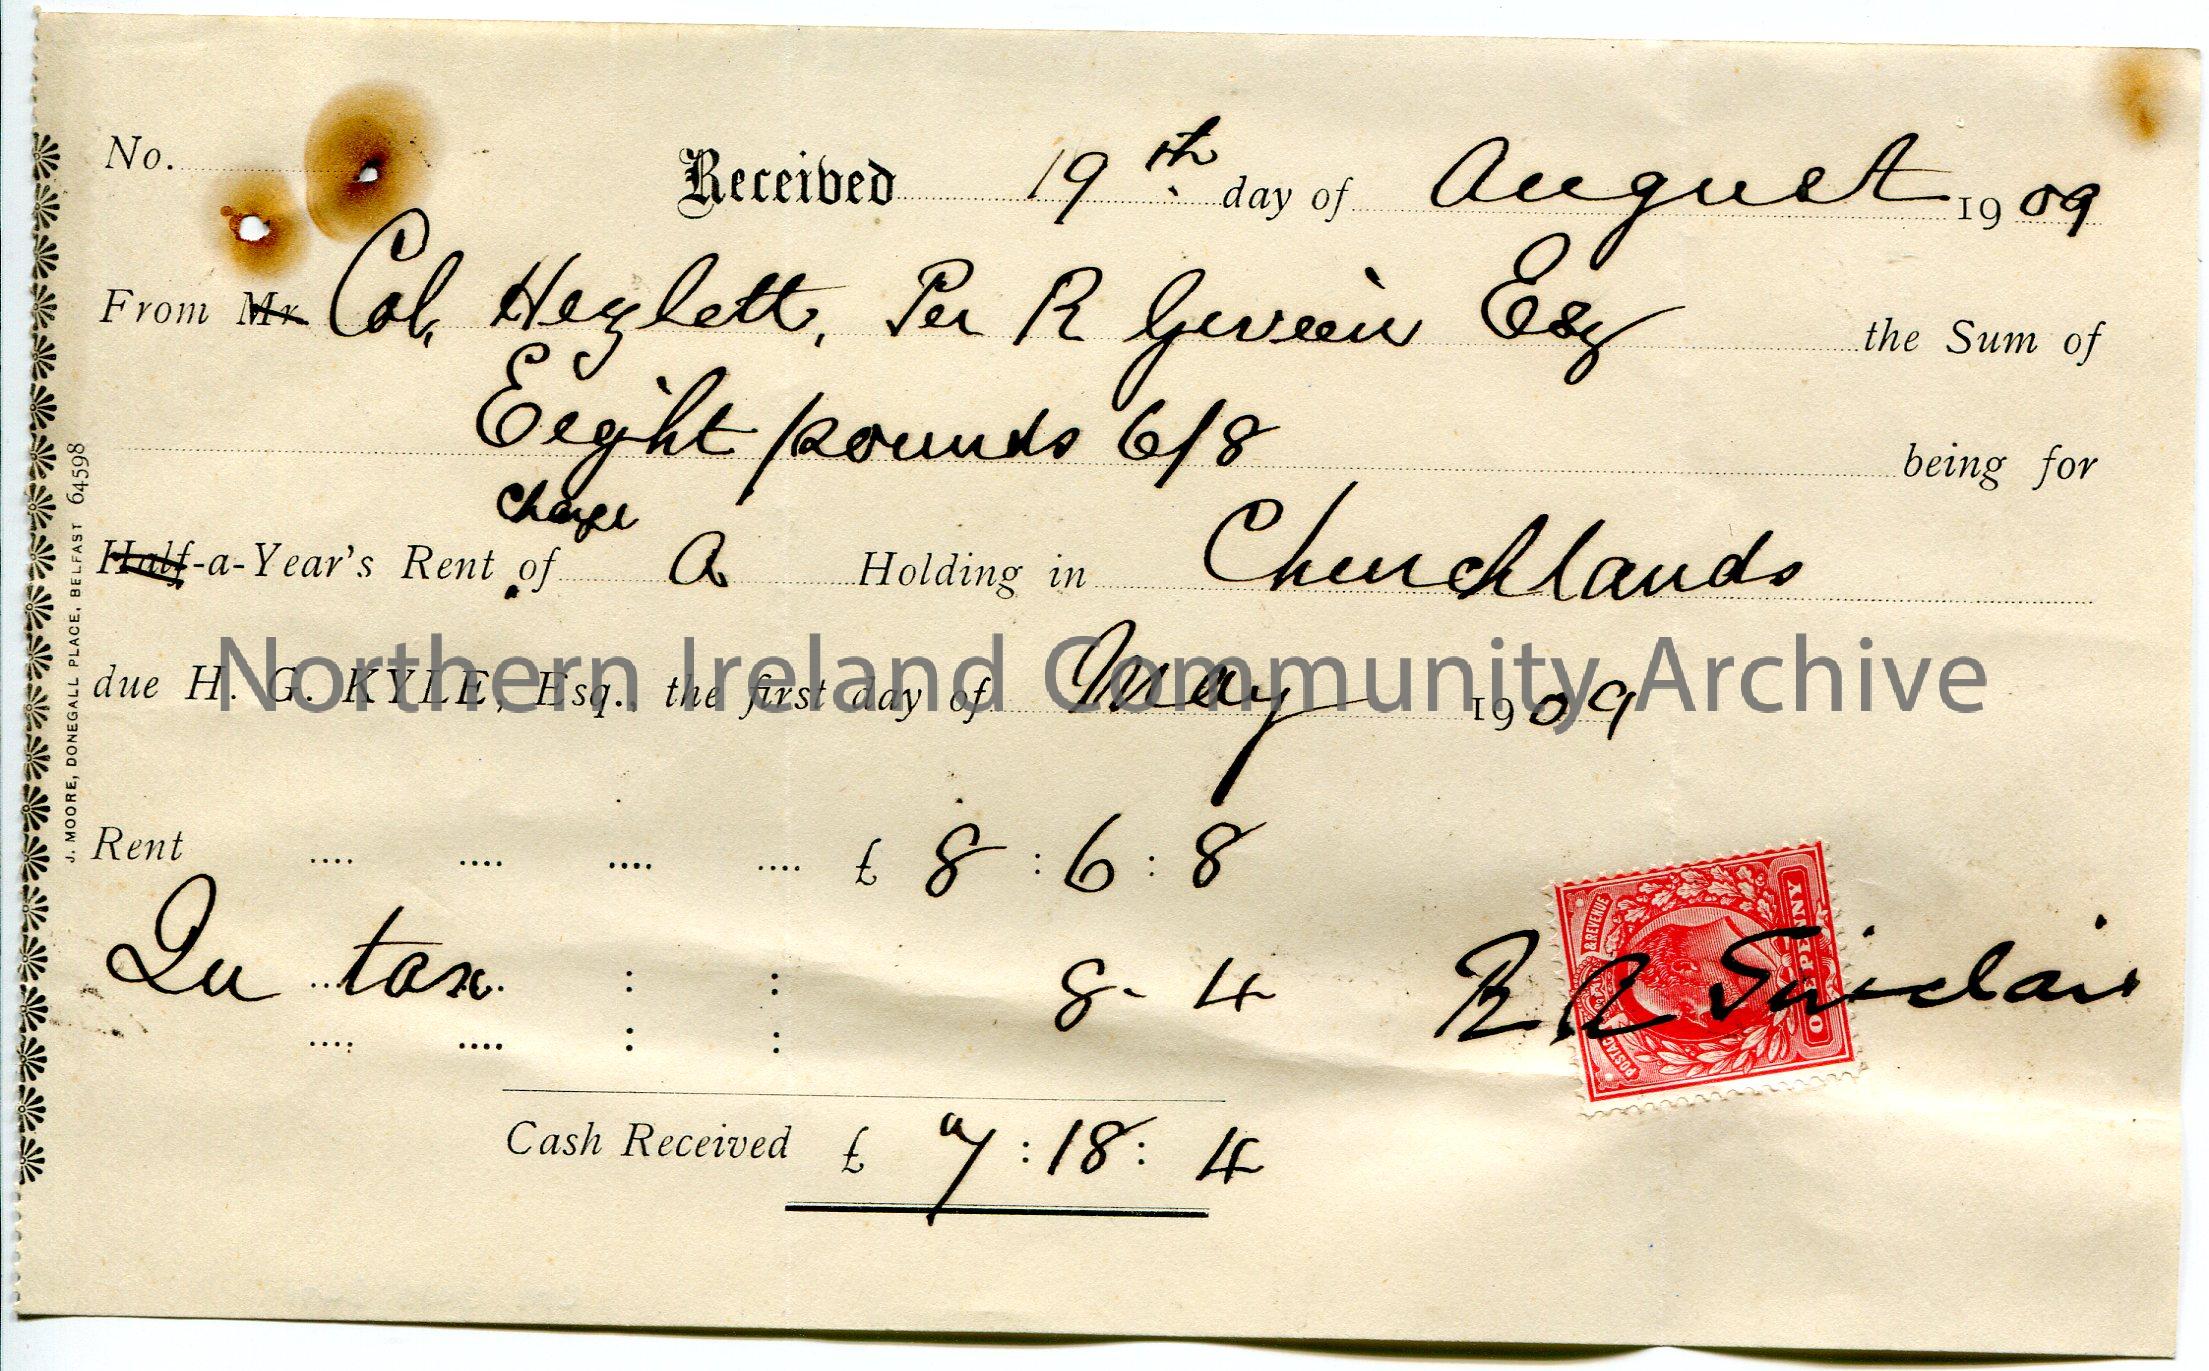 No.
Received 19th day of August 1909
From Mr Col. Hezlett, Per R Girvin Esq the Sum of
Eeight pounds 6/8 being for
charge
Half-a-Year's Rent of A Holding in Churchlands
due H. G. KYLE, Esq., the first day of May 1909
Northern Ireland Community Archive
Rent .... .... .... .... £ 8 : 6 : 8
In tax : : 8 - 4
.... .... : :
R R Sinclair
POSTAGE & REVENUE
ONE PENNY
Cash Received £ 7 : 18 : 4
J. MOORE, DONEGALL PLACE, BELFAST 64598